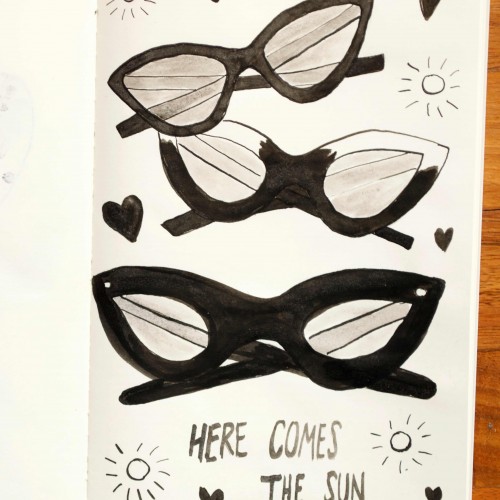 HERE COMES
THE SUN